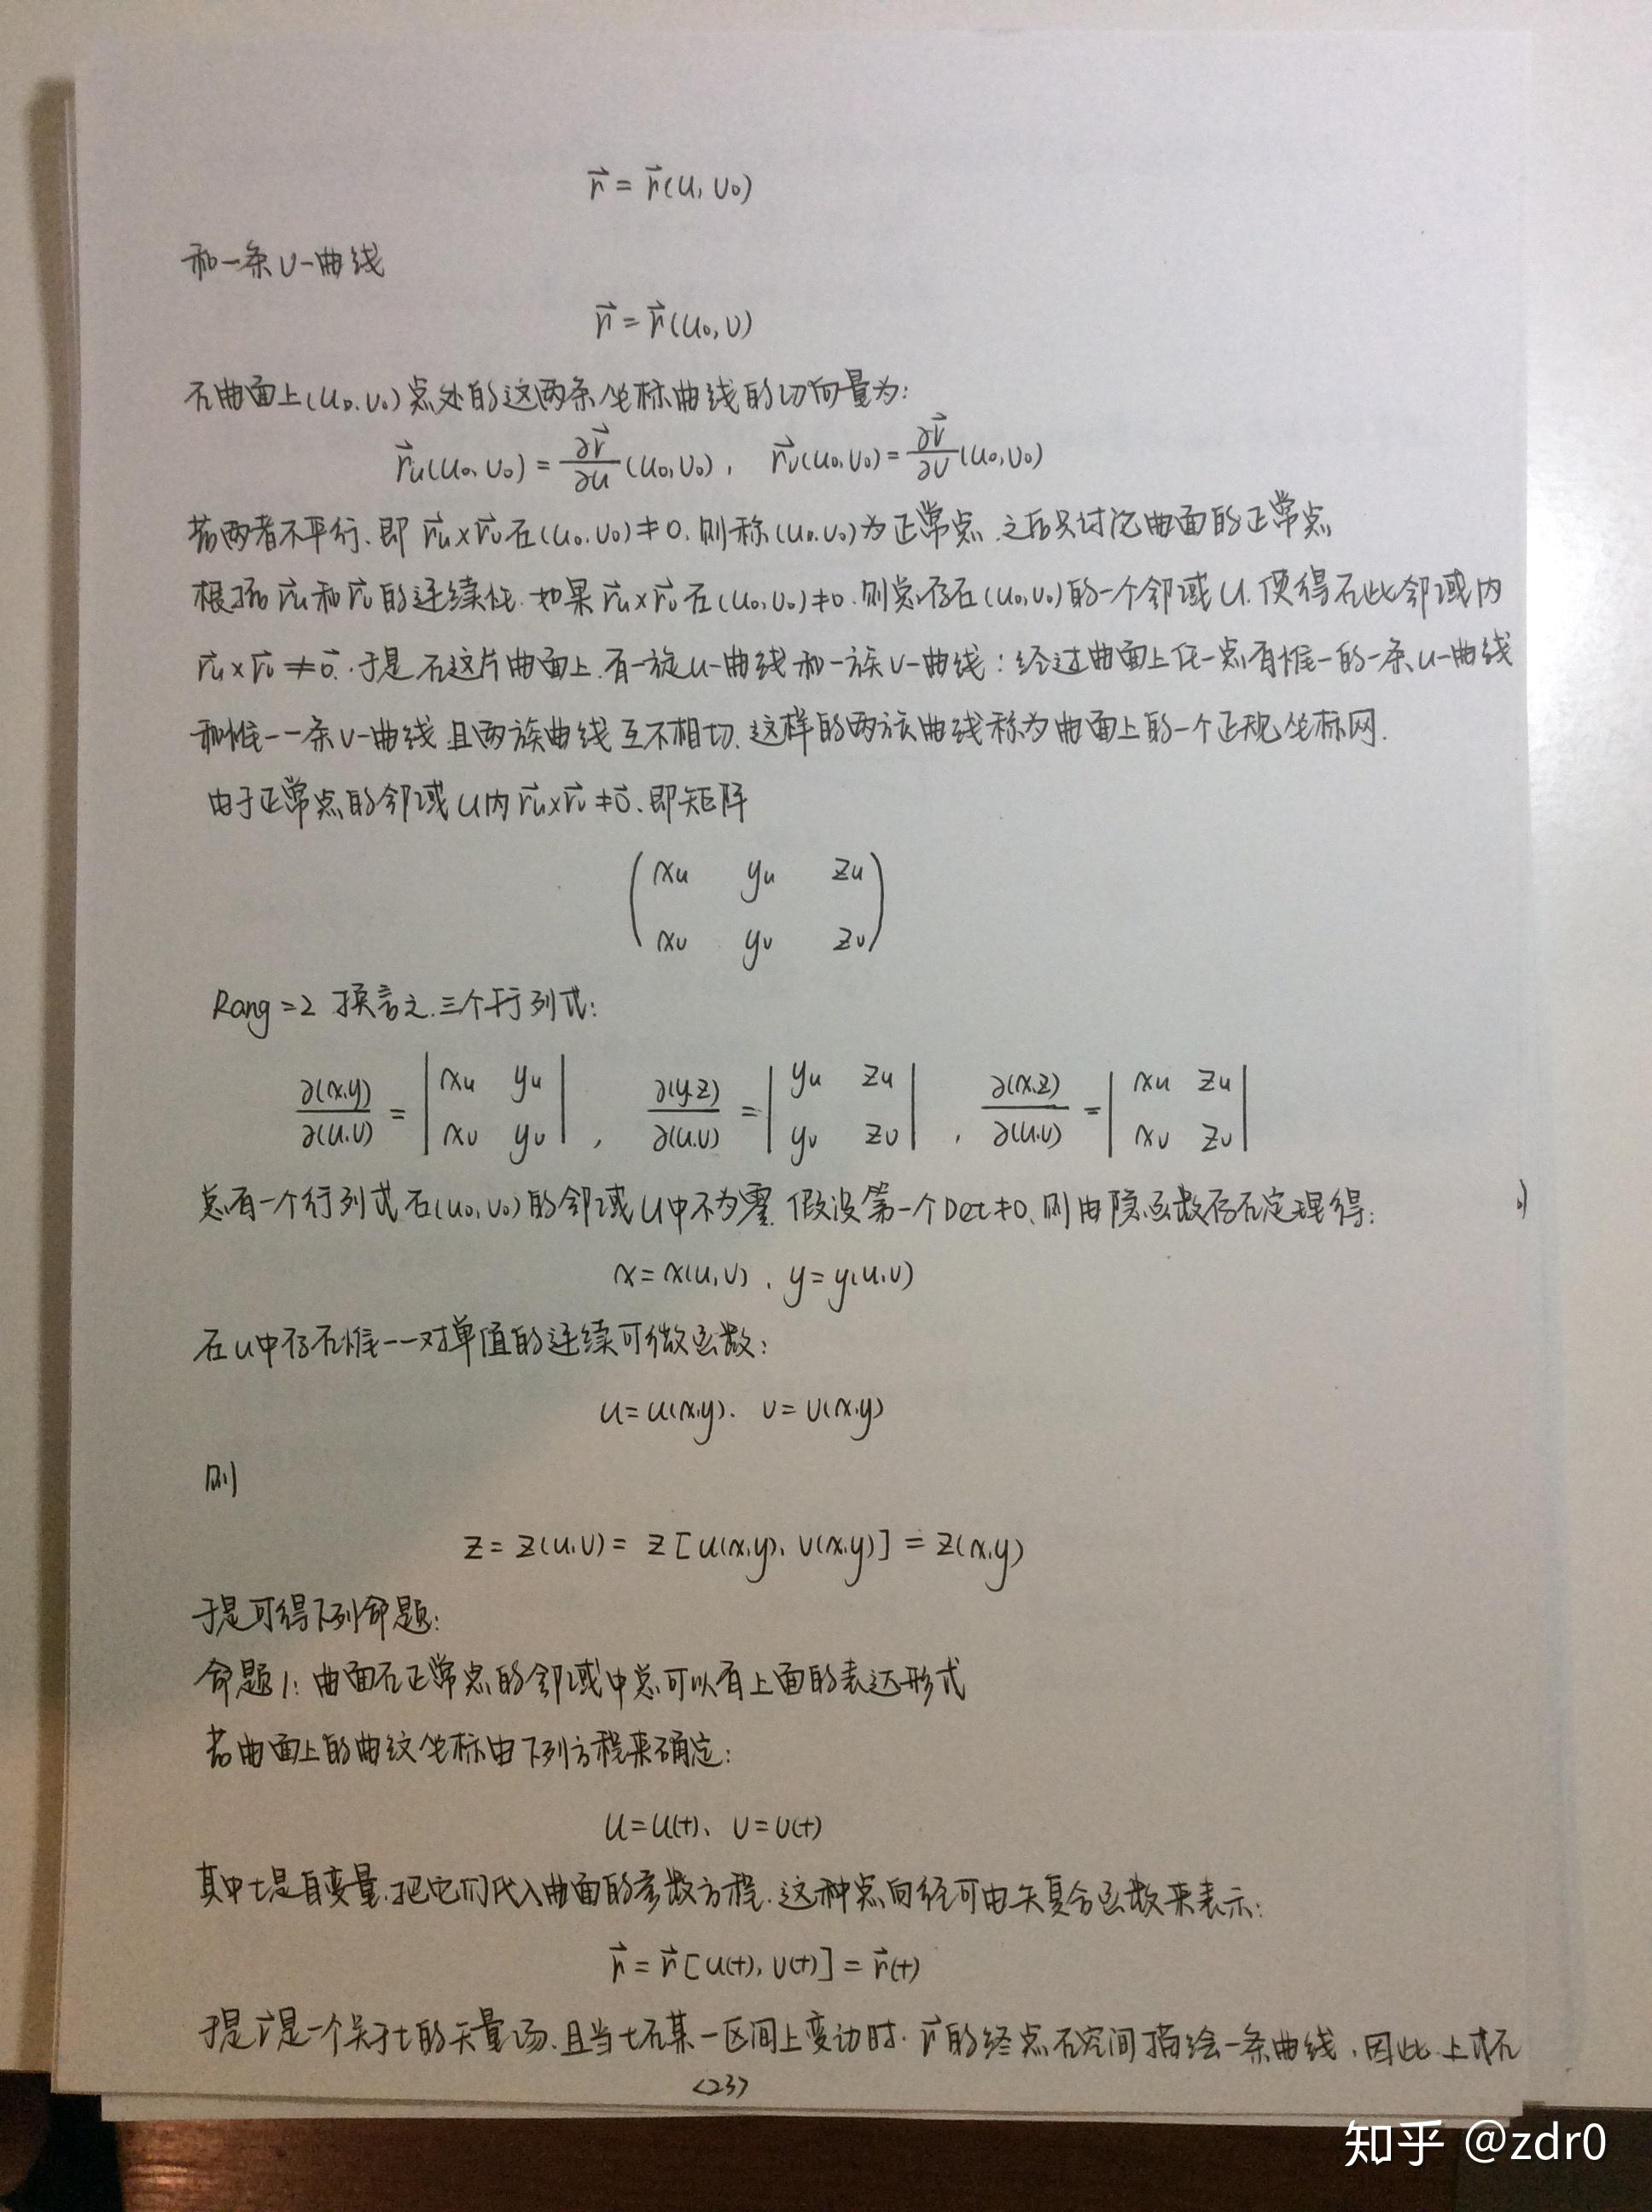 r⃗ = r⃗(u, v₀)
和一条v-曲线
r⃗ = r⃗(u₀, v)
在曲面上(u₀,v₀)点处的这两条坐标曲线的切向量为:
r⃗u(u₀,v₀) = ∂r⃗/∂u (u₀,v₀), r⃗v(u₀,v₀) = ∂r⃗/∂v (u₀,v₀)
若两者不平行、即 r⃗u×r⃗v在(u₀,v₀)≠0,则称(u₀,v₀)为正常点.之后只讨论曲面的正常点
根据r⃗u和r⃗v的连续性.如果r⃗u×r⃗v在(u₀,v₀)≠0.则总存在(u₀,v₀)的一个邻域U.使得在此邻域内
r⃗u×r⃗v≠0⃗.于是在这片曲面上.有一族u-曲线和一族v-曲线:经过曲面上任一点有惟一的一条u-曲线
和惟一一条v-曲线.且两族曲线互不相切.这样的两族曲线称为曲面上的一个正规坐标网.
由于正常点的邻域U内r⃗u×r⃗v≠0⃗.即矩阵
( xu yu zu
xv yv zv )
Rang=2 换言之.三个行列式:
∂(x,y)/∂(u,v) = | xu yu ; xv yv |, ∂(y,z)/∂(u,v) = | yu zu ; yv zv |, ∂(x,z)/∂(u,v) = | xu zu ; xv zv |
总有一个行列式在(u₀,v₀)的邻域U中不为零.假设第一个Det≠0、则由隐函数存在定理得:
x=x(u,v), y=y(u,v)
在U中存在惟一一对单值的连续可微函数:
u=u(x,y). v=v(x,y)
则
z=z(u,v)= z[u(x,y), v(x,y)] = z(x,y)
于是可得下列命题:
命题1: 曲面在正常点的邻域中总可以有上面的表达形式
若曲面上的曲纹坐标由下列方程来确定:
u=u(t)、v=v(t)
其中t是自变量.把它们代入曲面的参数方程.这种点向径可由矢复合函数来表示:
r⃗ = r⃗[u(t), v(t)] = r⃗(t)
于是r⃗是一个关于t的矢量场.且当t在某一区间上变动时.r⃗的终点在空间描绘一条曲线,因此.上式在
<23>
知乎 @zdr0